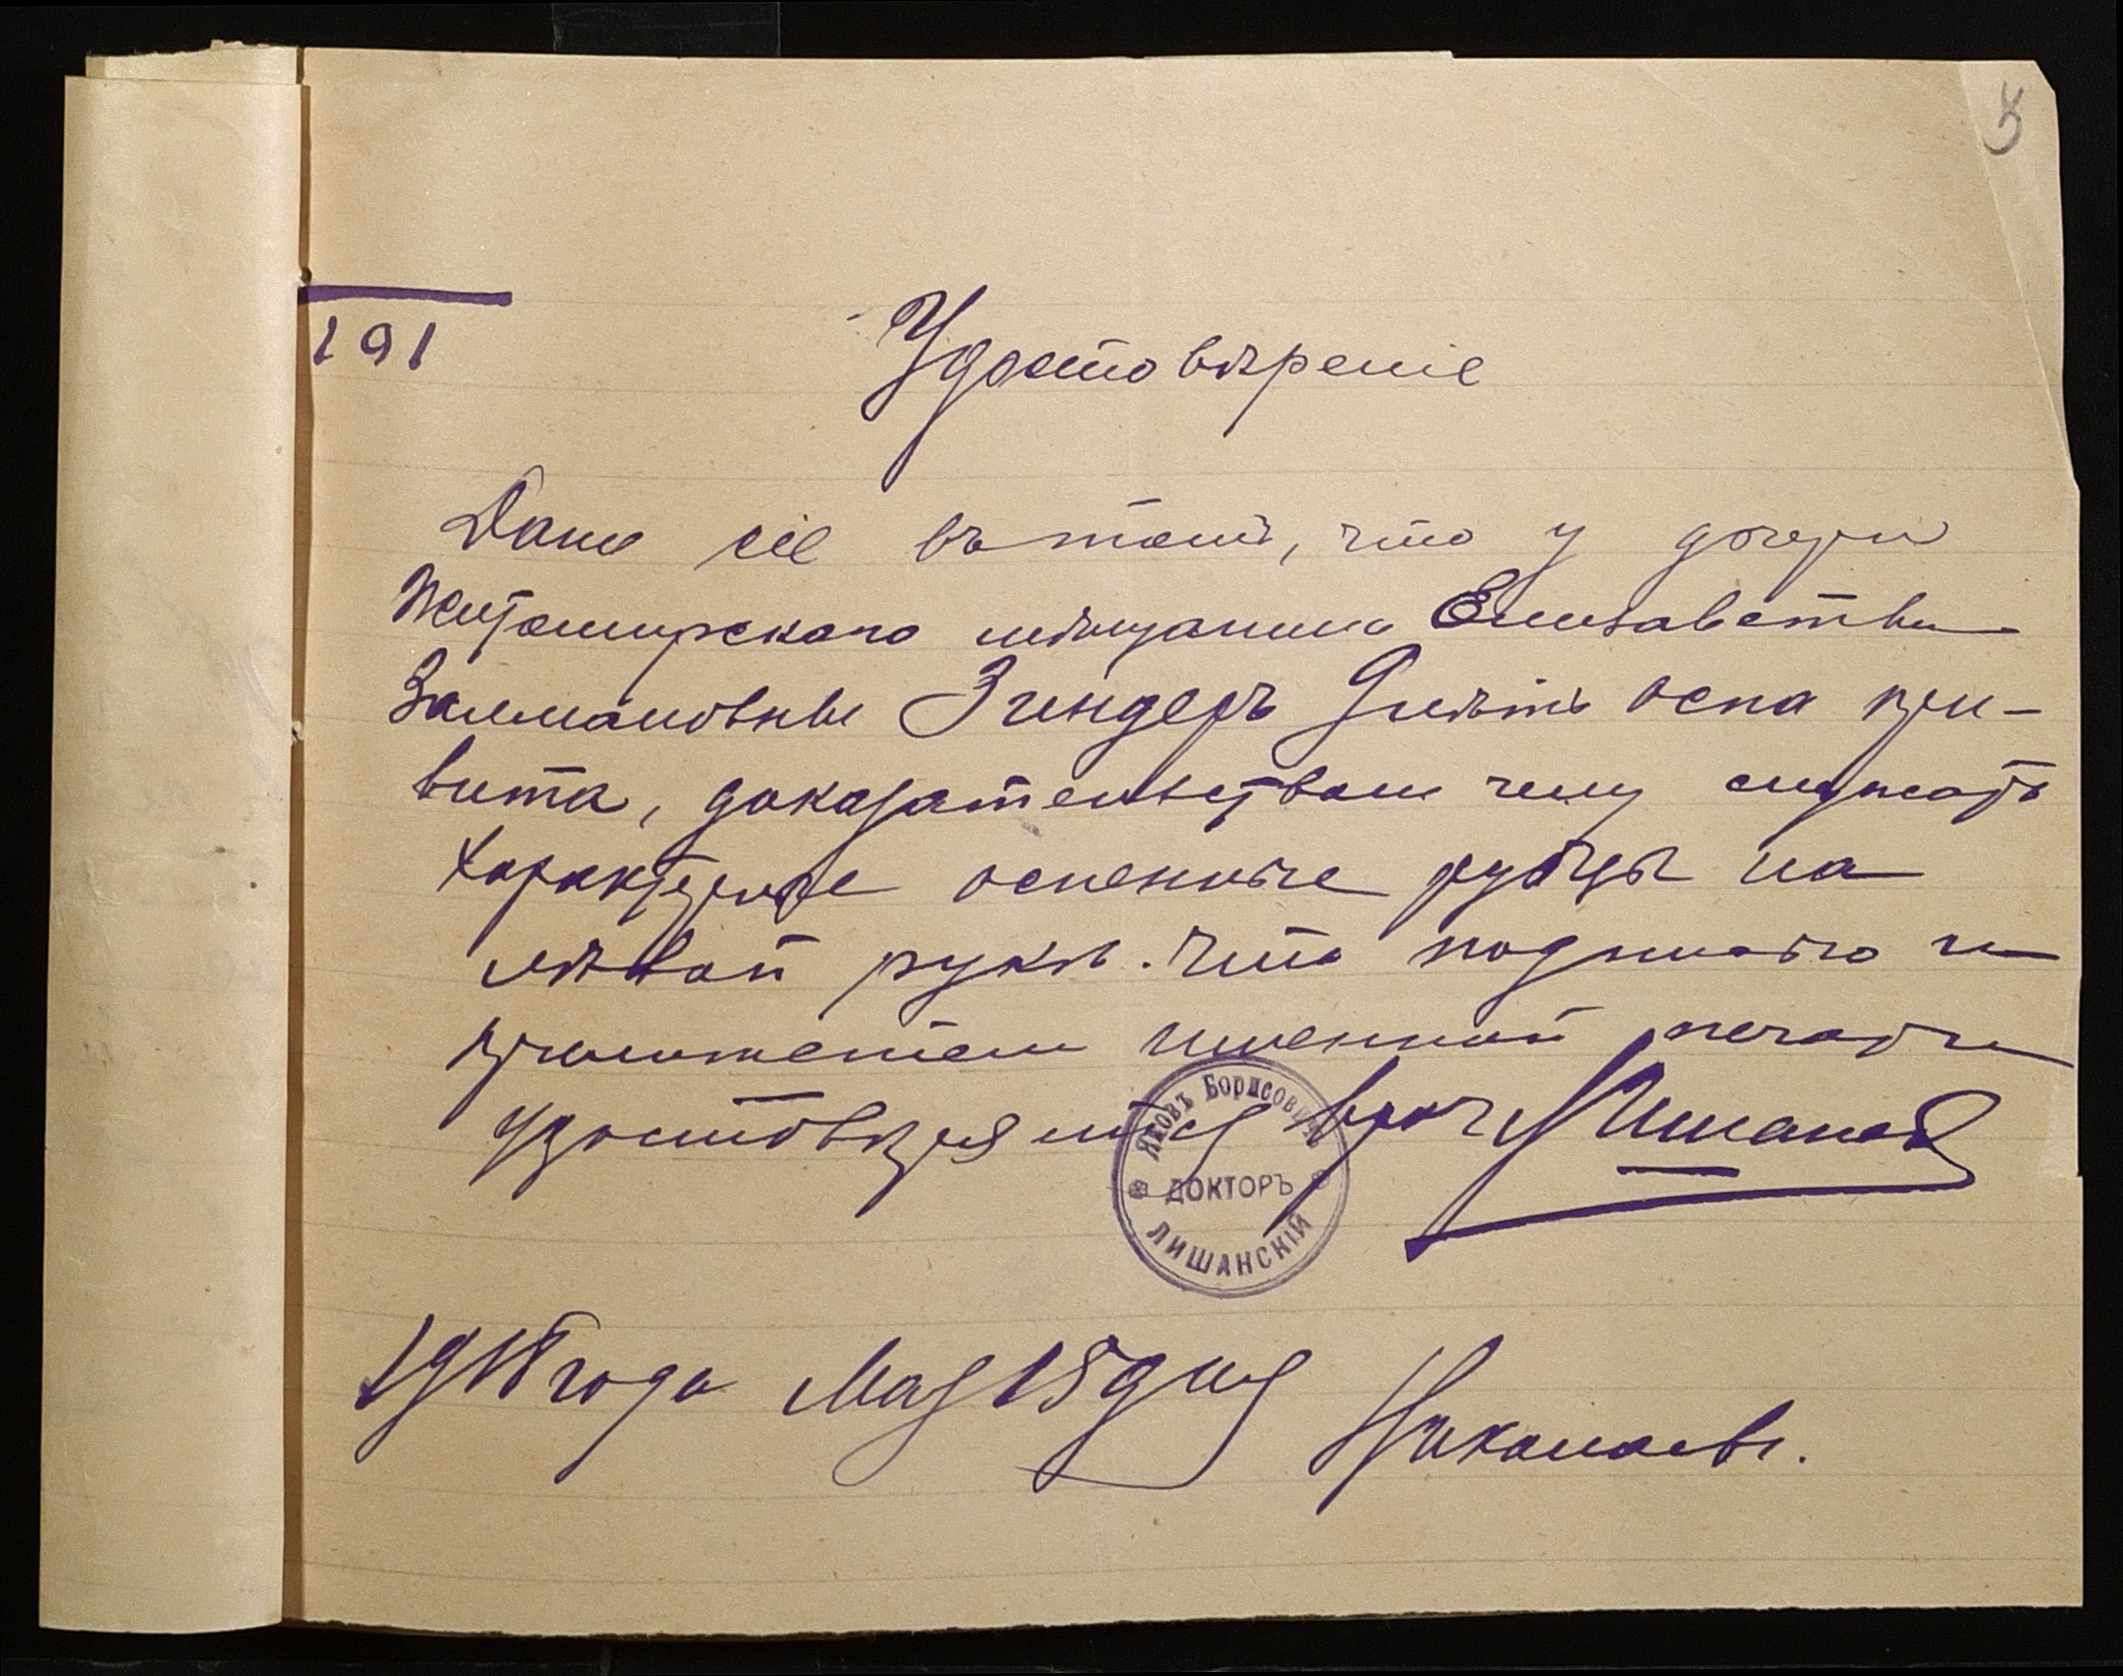 8
191
Удостовѣреніе
Дано сіе въ томъ, что у дочери
Житомирскаго мѣщанина Елизаветы
Залмановны Зиндеръ 9 лѣтъ оспа при-
вита, доказательствомъ чему служатъ
характерные оспенные рубцы на
лѣвой рукѣ. Что подписью и
приложеніемъ именной печати
удостовѣряется Врачъ Лишанскій
Яковъ Борисовичъ
ДОКТОРЪ
ЛИШАНСКІЙ
года Мая 15 дня
Николаевъ.